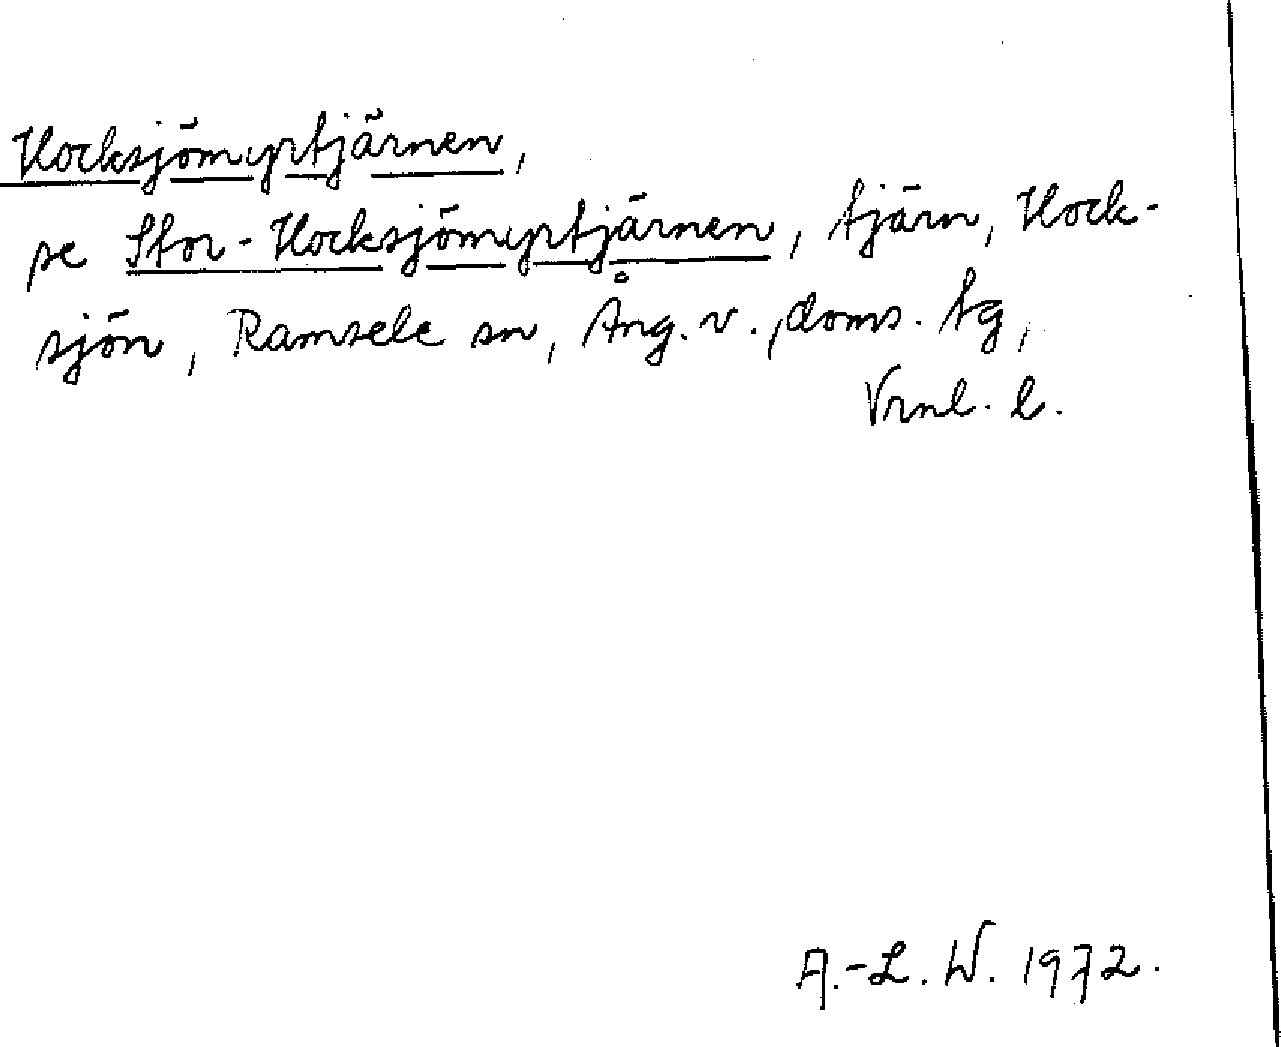 Hocksjömyrtjärnen,
se Stor-Hocksjömyrtjärnen, tjärn, Hock-
sjön, Ramsele sn, Ång. v., doms. tg,
Vrnl. l.
A.-L. W. 1972.